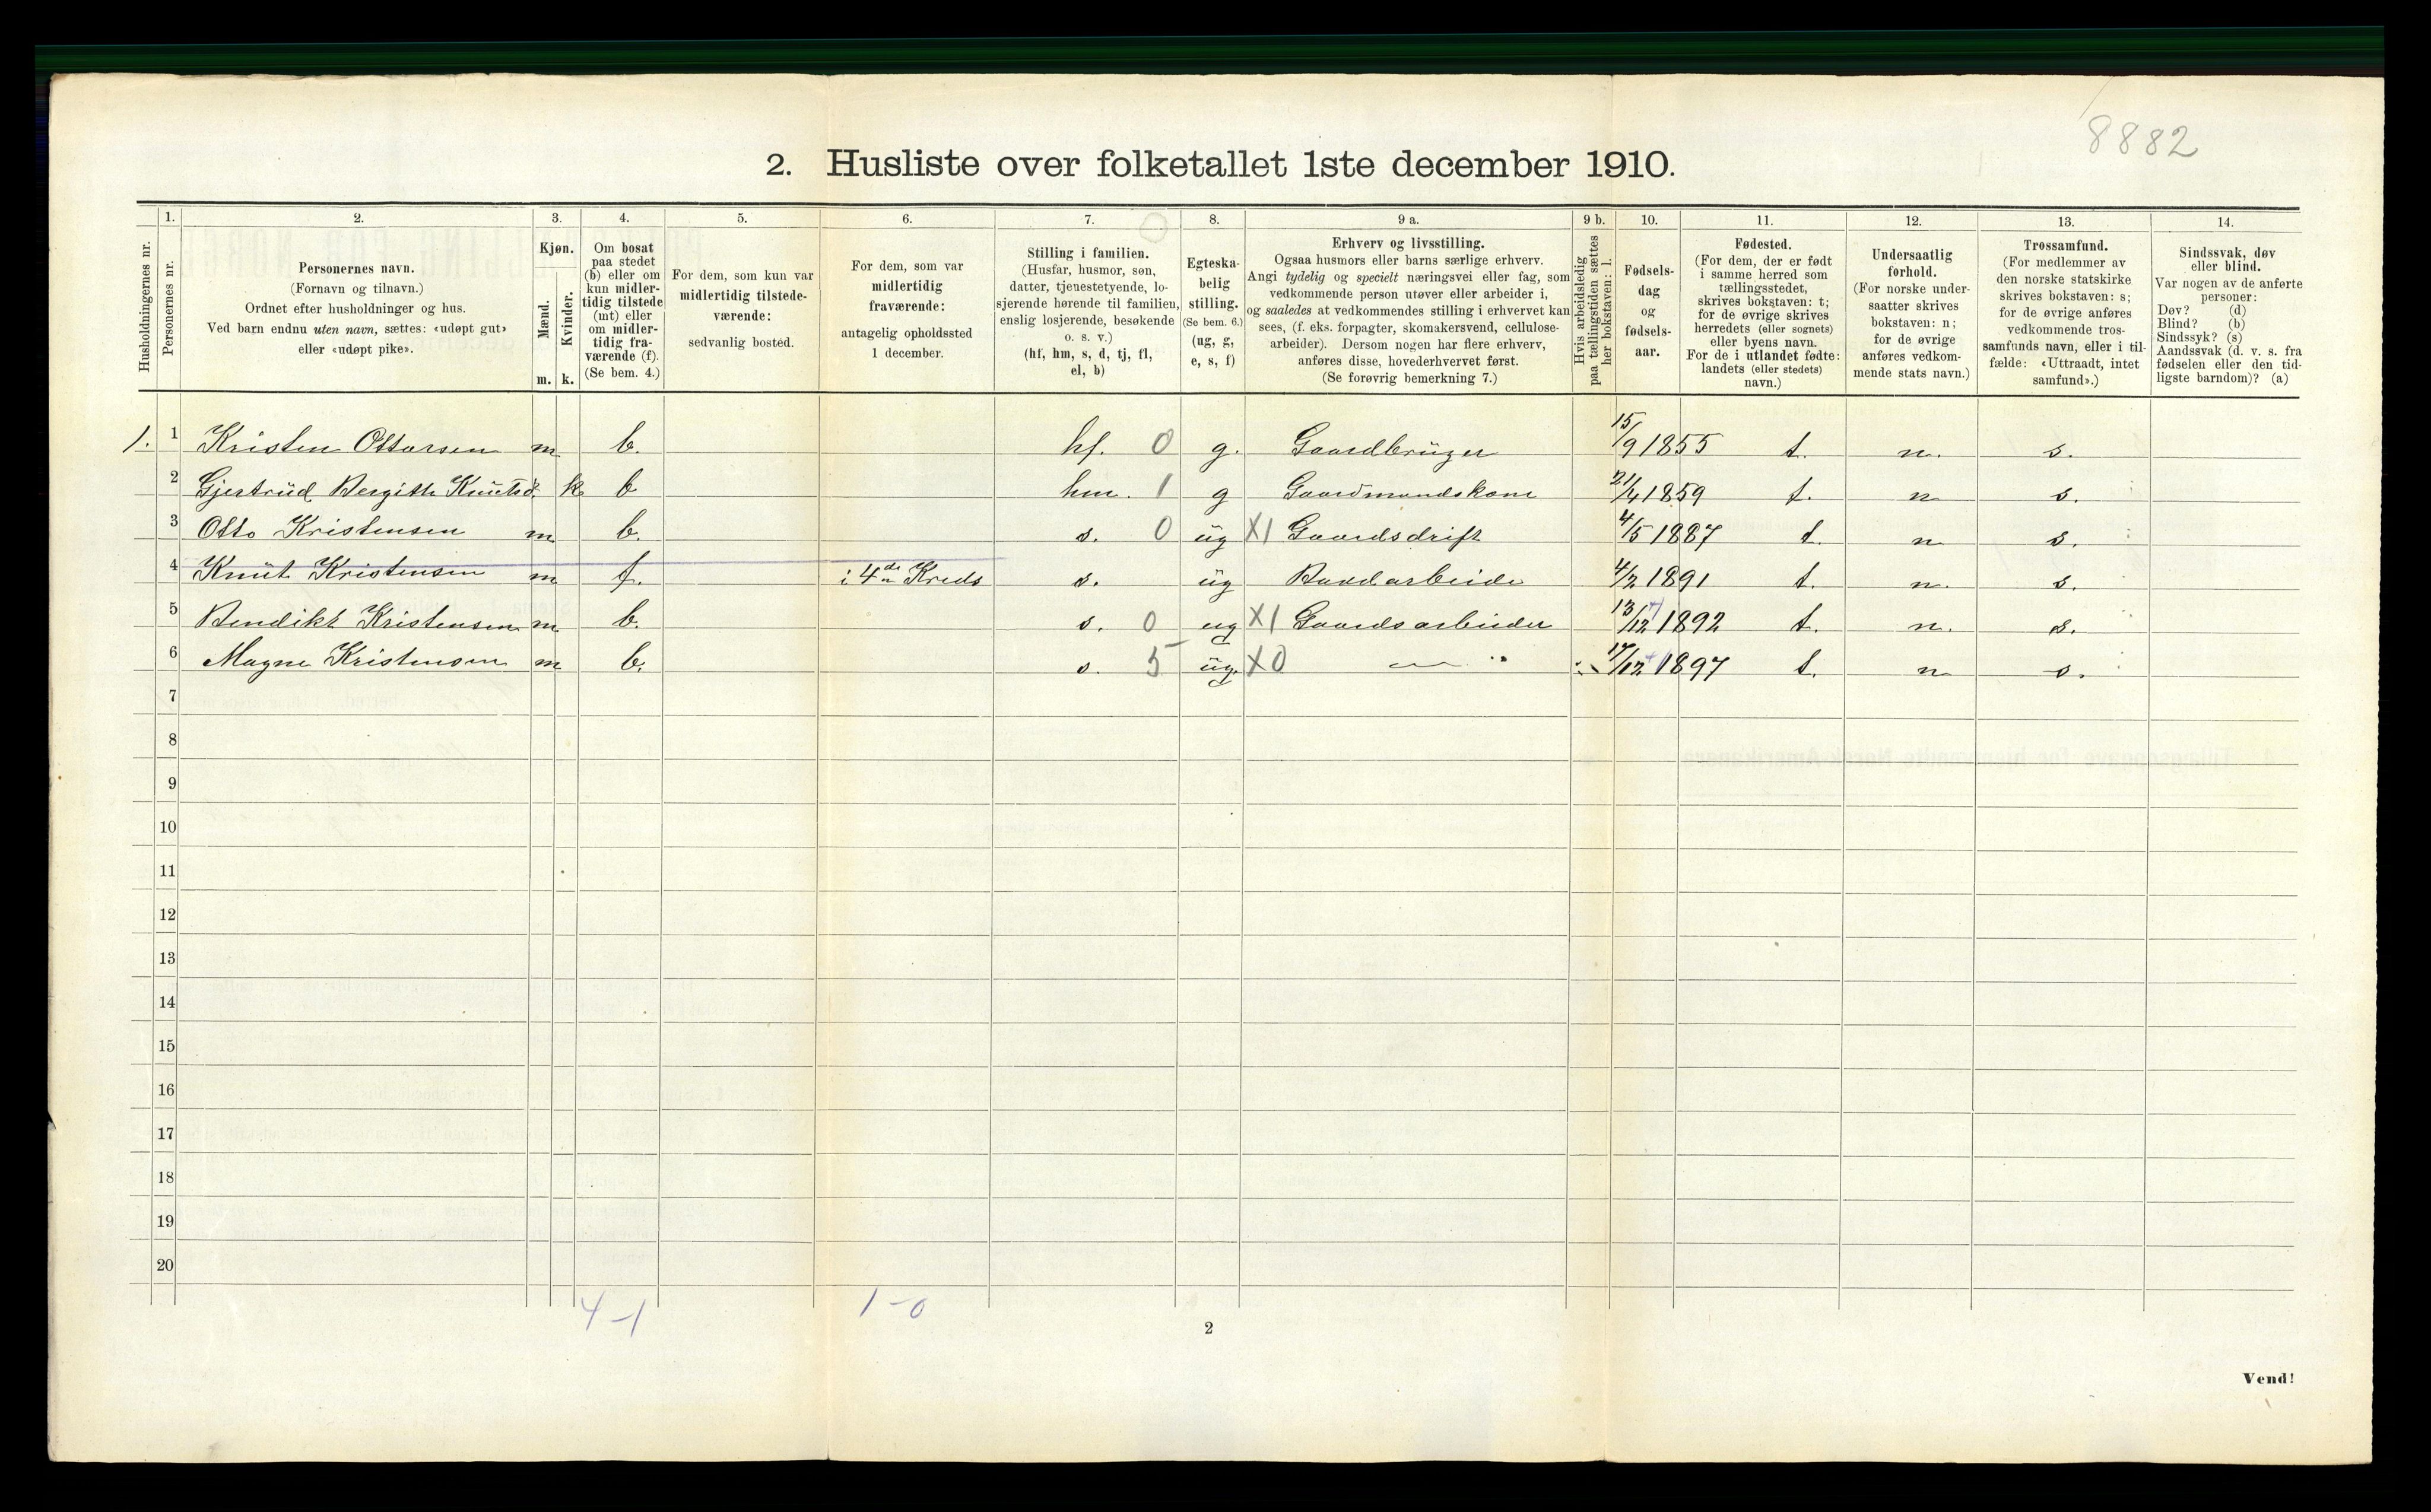 8882
2. Husliste over folketallet 1ste december 1910.
Husholdningernes nr.
1.
Personernes nr.
2.
Personernes navn.
(Fornavn og tilnavn.)
Ordnet efter husholdninger og hus.
Ved barn endnu uten navn, sættes: «udøpt gut»
eller «udøpt pike».
3.
Kjøn.
Mænd.
m.
Kvinder.
k.
4.
Om bosat
paa stedet
(b) eller om
kun midler-
tidig tilstede
(mt) eller
om midler-
tidig fra-
værende (f).
(Se bem. 4.)
5.
For dem, som kun var
midlertidig tilstede-
værende:
sedvanlig bosted.
6.
For dem, som var
midlertidig
fraværende:
antagelig opholdssted
1 december.
7.
Stilling i familien.
(Husfar, husmor, søn,
datter, tjenestetyende, lo-
sjerende hørende til familien,
enslig losjerende, besøkende
o. s. v.)
(hf, hm, s, d, tj, fl,
el, b)
8.
Egteska-
belig
stilling.
(Se bem. 6.)
(ug, g,
e, s, f)
9 a.
Erhverv og livsstilling.
Ogsaa husmors eller barns særlige erhverv.
Angi tydelig og specielt næringsvei eller fag, som
vedkommende person utøver eller arbeider i,
og saaledes at vedkommendes stilling i erhvervet kan
sees, (f. eks. forpagter, skomakersvend, cellulose-
arbeider). Dersom nogen har flere erhverv,
anføres disse, hovederhvervet først.
(Se forøvrig bemerkning 7.)
9 b.
Hvis arbeidsledig
paa tællingstiden sættes
her bokstaven: l.
10.
Fødsels-
dag
og
fødsels-
aar.
11.
Fødested.
(For dem, der er født
i samme herred som
tællingsstedet,
skrives bokstaven: t;
for de øvrige skrives
herredets (eller sognets)
eller byens navn.
For de i utlandet fødte:
landets (eller stedets)
navn.)
12.
Undersaatlig
forhold.
(For norske under-
saatter skrives
bokstaven: n;
for de øvrige
anføres vedkom-
mende stats navn.)
13.
Trossamfund.
(For medlemmer av
den norske statskirke
skrives bokstaven: s;
for de øvrige anføres
vedkommende tros-
samfunds navn, eller i til-
fælde: «Uttraadt, intet
samfund».)
14.
Sindssvak, døv
eller blind.
Var nogen av de anførte
personer:
Døv? (d)
Blind? (b)
Sindssyk? (s)
Aandssvak (d. v. s. fra
fødselen eller den tid-
ligste barndom)? (a)
1. 1 Kristen Ottarsen m b. hf. 0 g. Gaardbrüger 15/9 1855 t. n. s.
2 Gjertrüd Bergithe Knütsd. k b hm. 1 g Gaardmandskone 21/4 1859 t. n s.
3 Otto Kristensen m b. s. 0 üg X1 Gaardsdrift 4/5 1887 t. n s.
4 Knüt Kristensen m f. i 4de Kreds s. üg 4/2 1891 t. n. s.
5 Bendikt Kristensen m b. s. 0 ug X1 Gaardsarbeider 13/12 1892 t. n. s.
6 Magne Kristensen m b. s. 5 üg. X0 — " 17/12 1897 t. n s.
7
8
9
10
11
12
13
14
15
16
17
18
19
20
4-1 1-0
2
Vend!